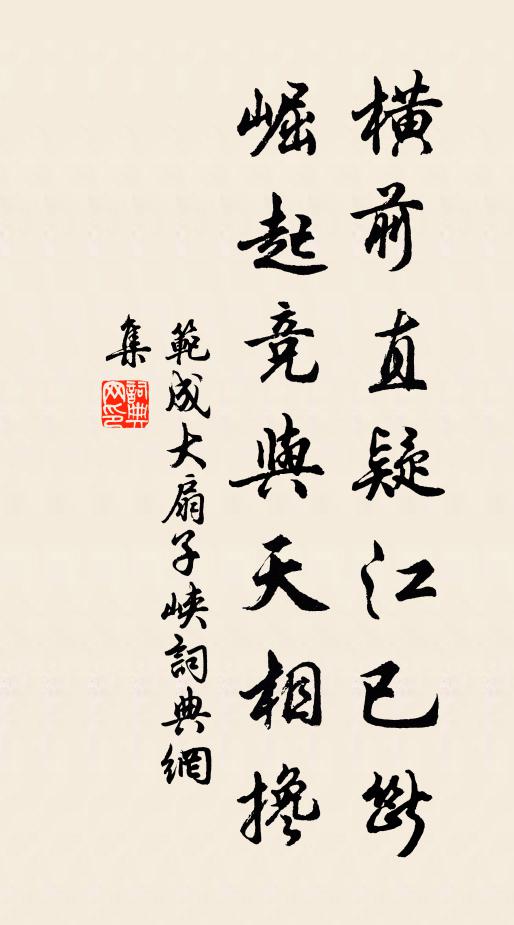 橫前直疑江已斷
崛起竞與天相攙
範成大扇子峽詞典網
集
詞典
网印